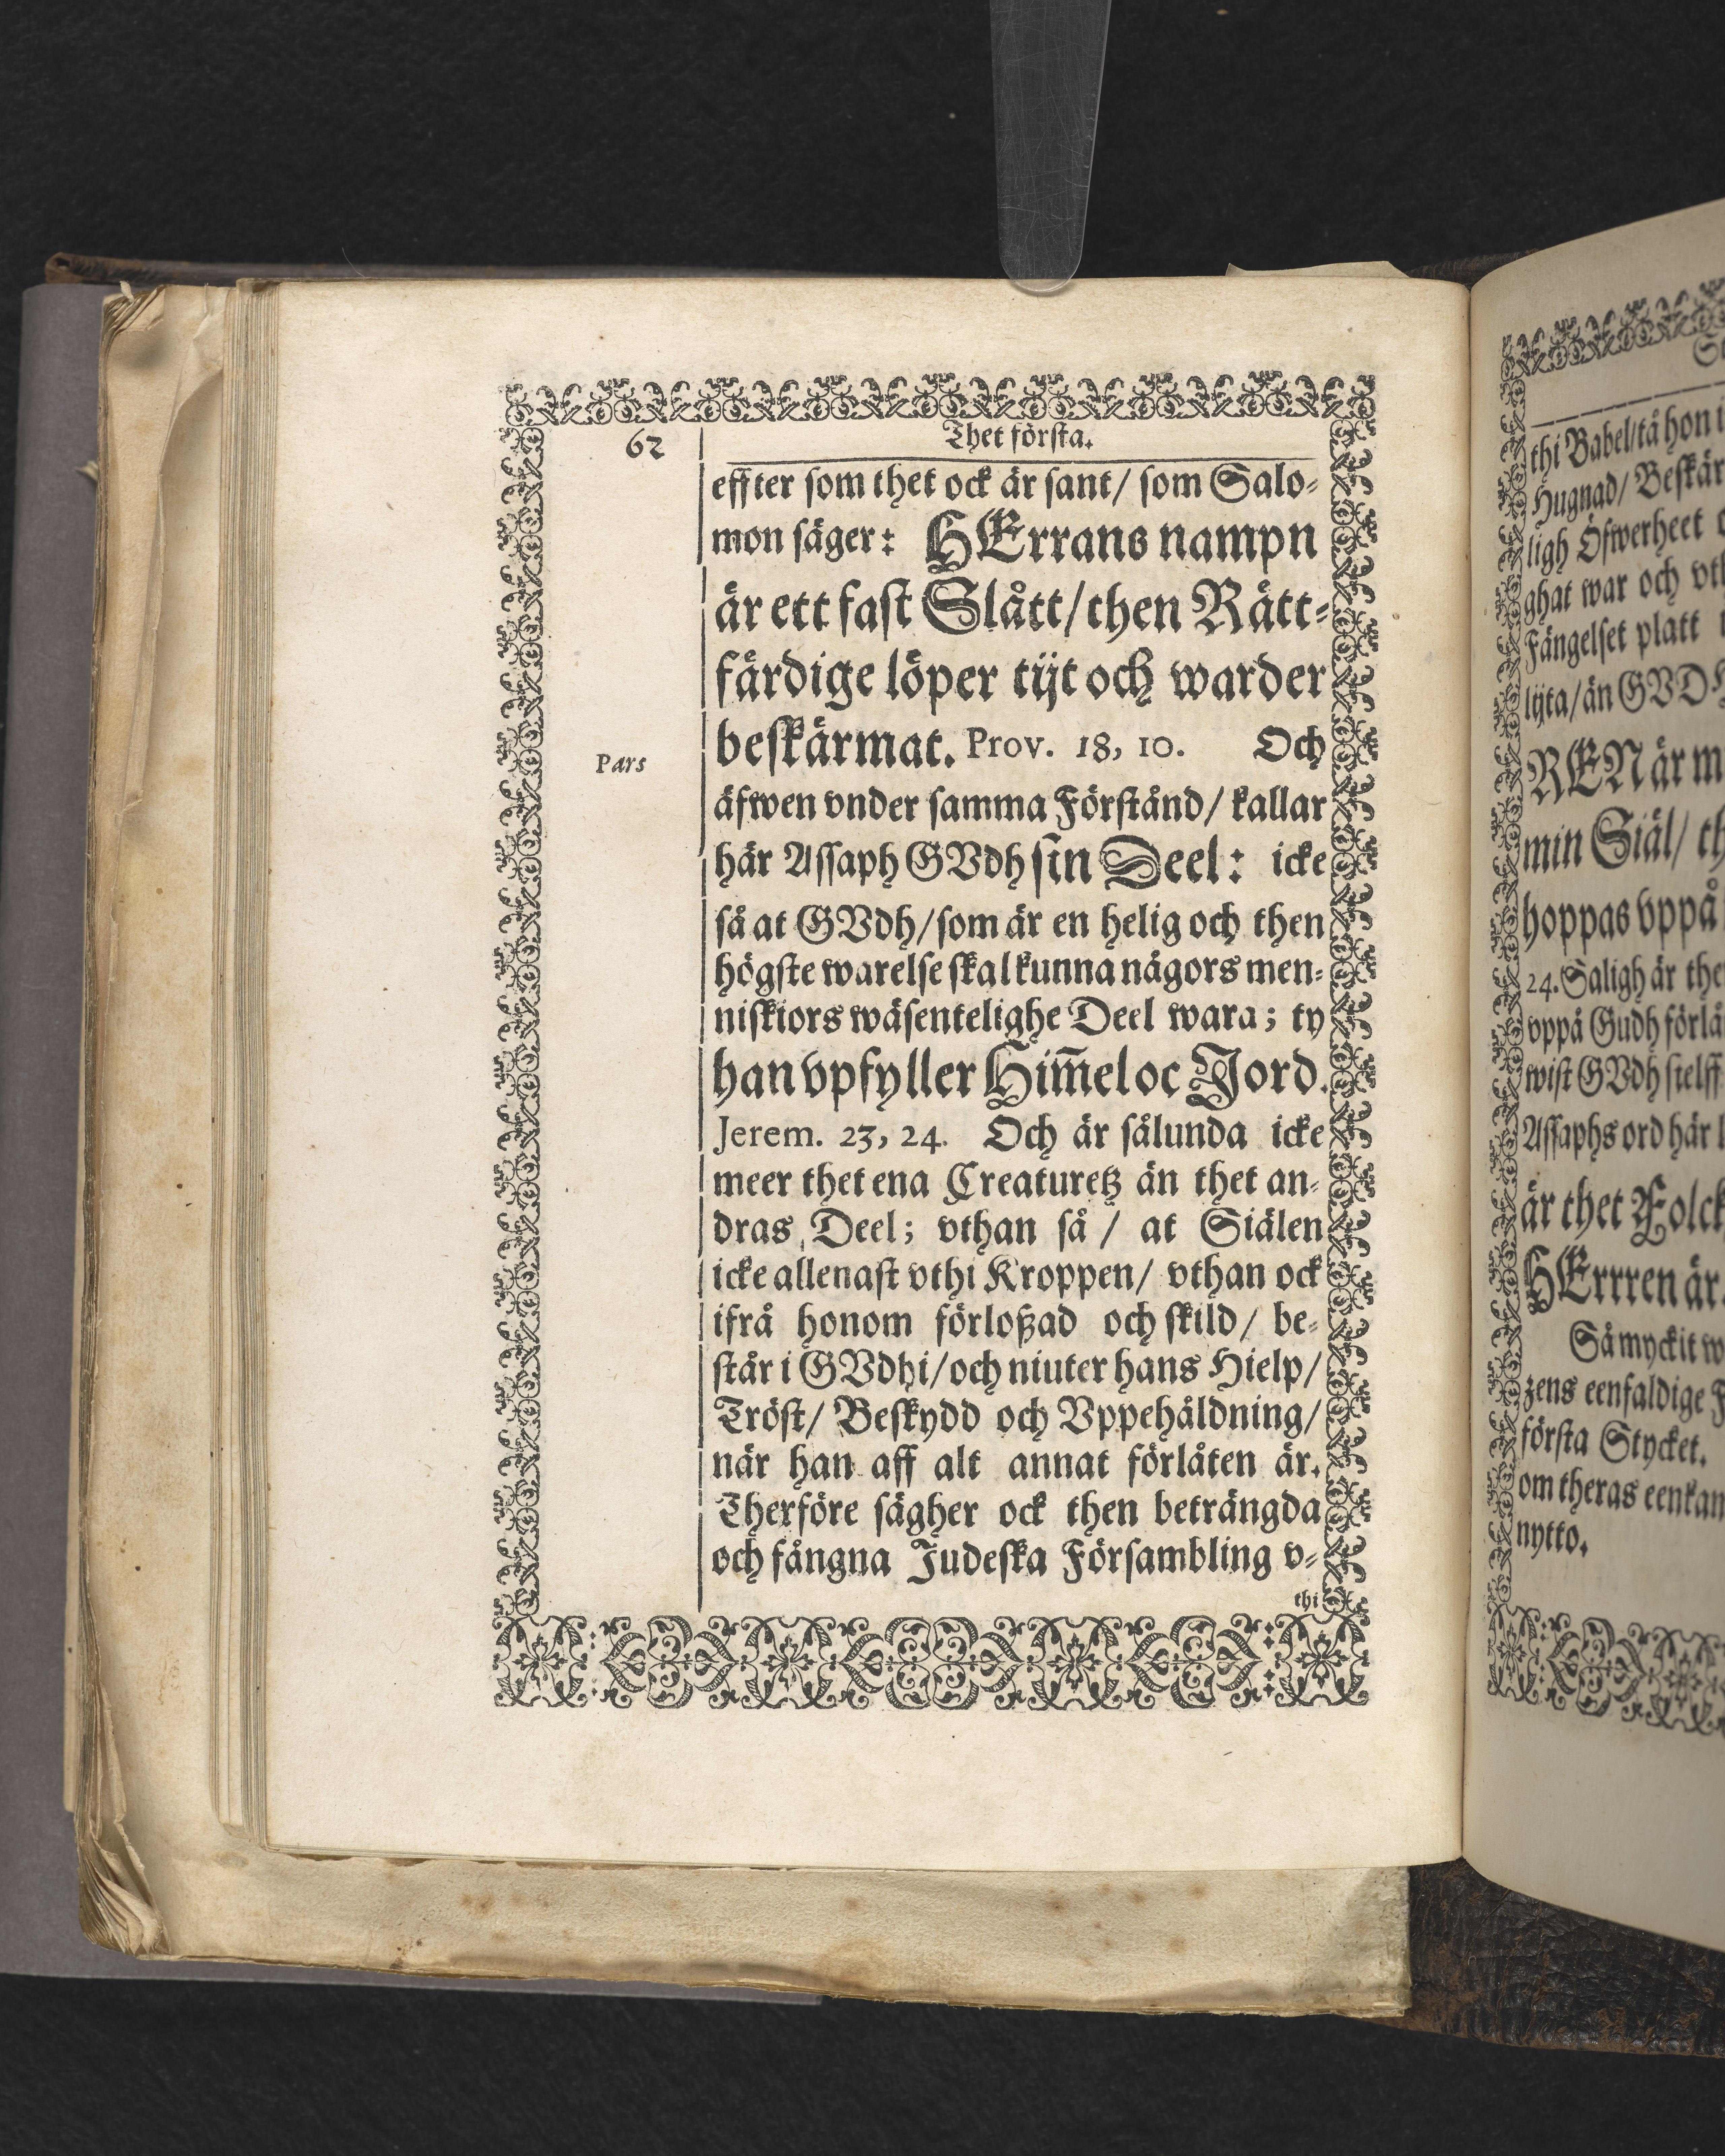 62
Thet första.
effter som thet ock är sant/ som Salo-
mon säger: HErrans nampn
är ett fast Slått/then Rätt-
färdige löper tijt och warder
beskärmat. Prov. 18, 10. Och
Pars
äfwen vnder samma Förstånd/ kallar
här Assaph GVdh sin Deel: icke
så at GVdh/som är en helig och then
högste warelse skal kunna någors men-
niskiors wäsentelighe Deel wara; ty
han vpfyller Him̅el oc Jord.
Jerem. 23, 24. Och är sålunda icke
meer thet ena Creaturetz än thet an-
dras Deel; vthan så / at Siälen
icke allenast vthi Kroppen/ vthan ock
ifrå honom förloßad och skild/ be-
står i GVdhi/och niuter hans Hielp/
Tröst/ Beskydd och Vppehåldning/
när han aff alt annat förlåten är.
Therföre sägher ock then beträngda
och fångna Judeska Försambling v-
thi
thi Babel/tå hon i
Hugnad/ Beskär
ligh Öfwerheet
ghat war och vth
Fängelset platt
lijta/än GVDH
REN är m
min Siäl/ th
hoppas vppå
24. Saligh är the
vppå Gudh förlå
wist GVdh sielff
Assaphs ord här
är thet Folck
HErrren är
Så myckit w
zens eenfaldige F
första Stycket.
om theras eenkan
nytto.